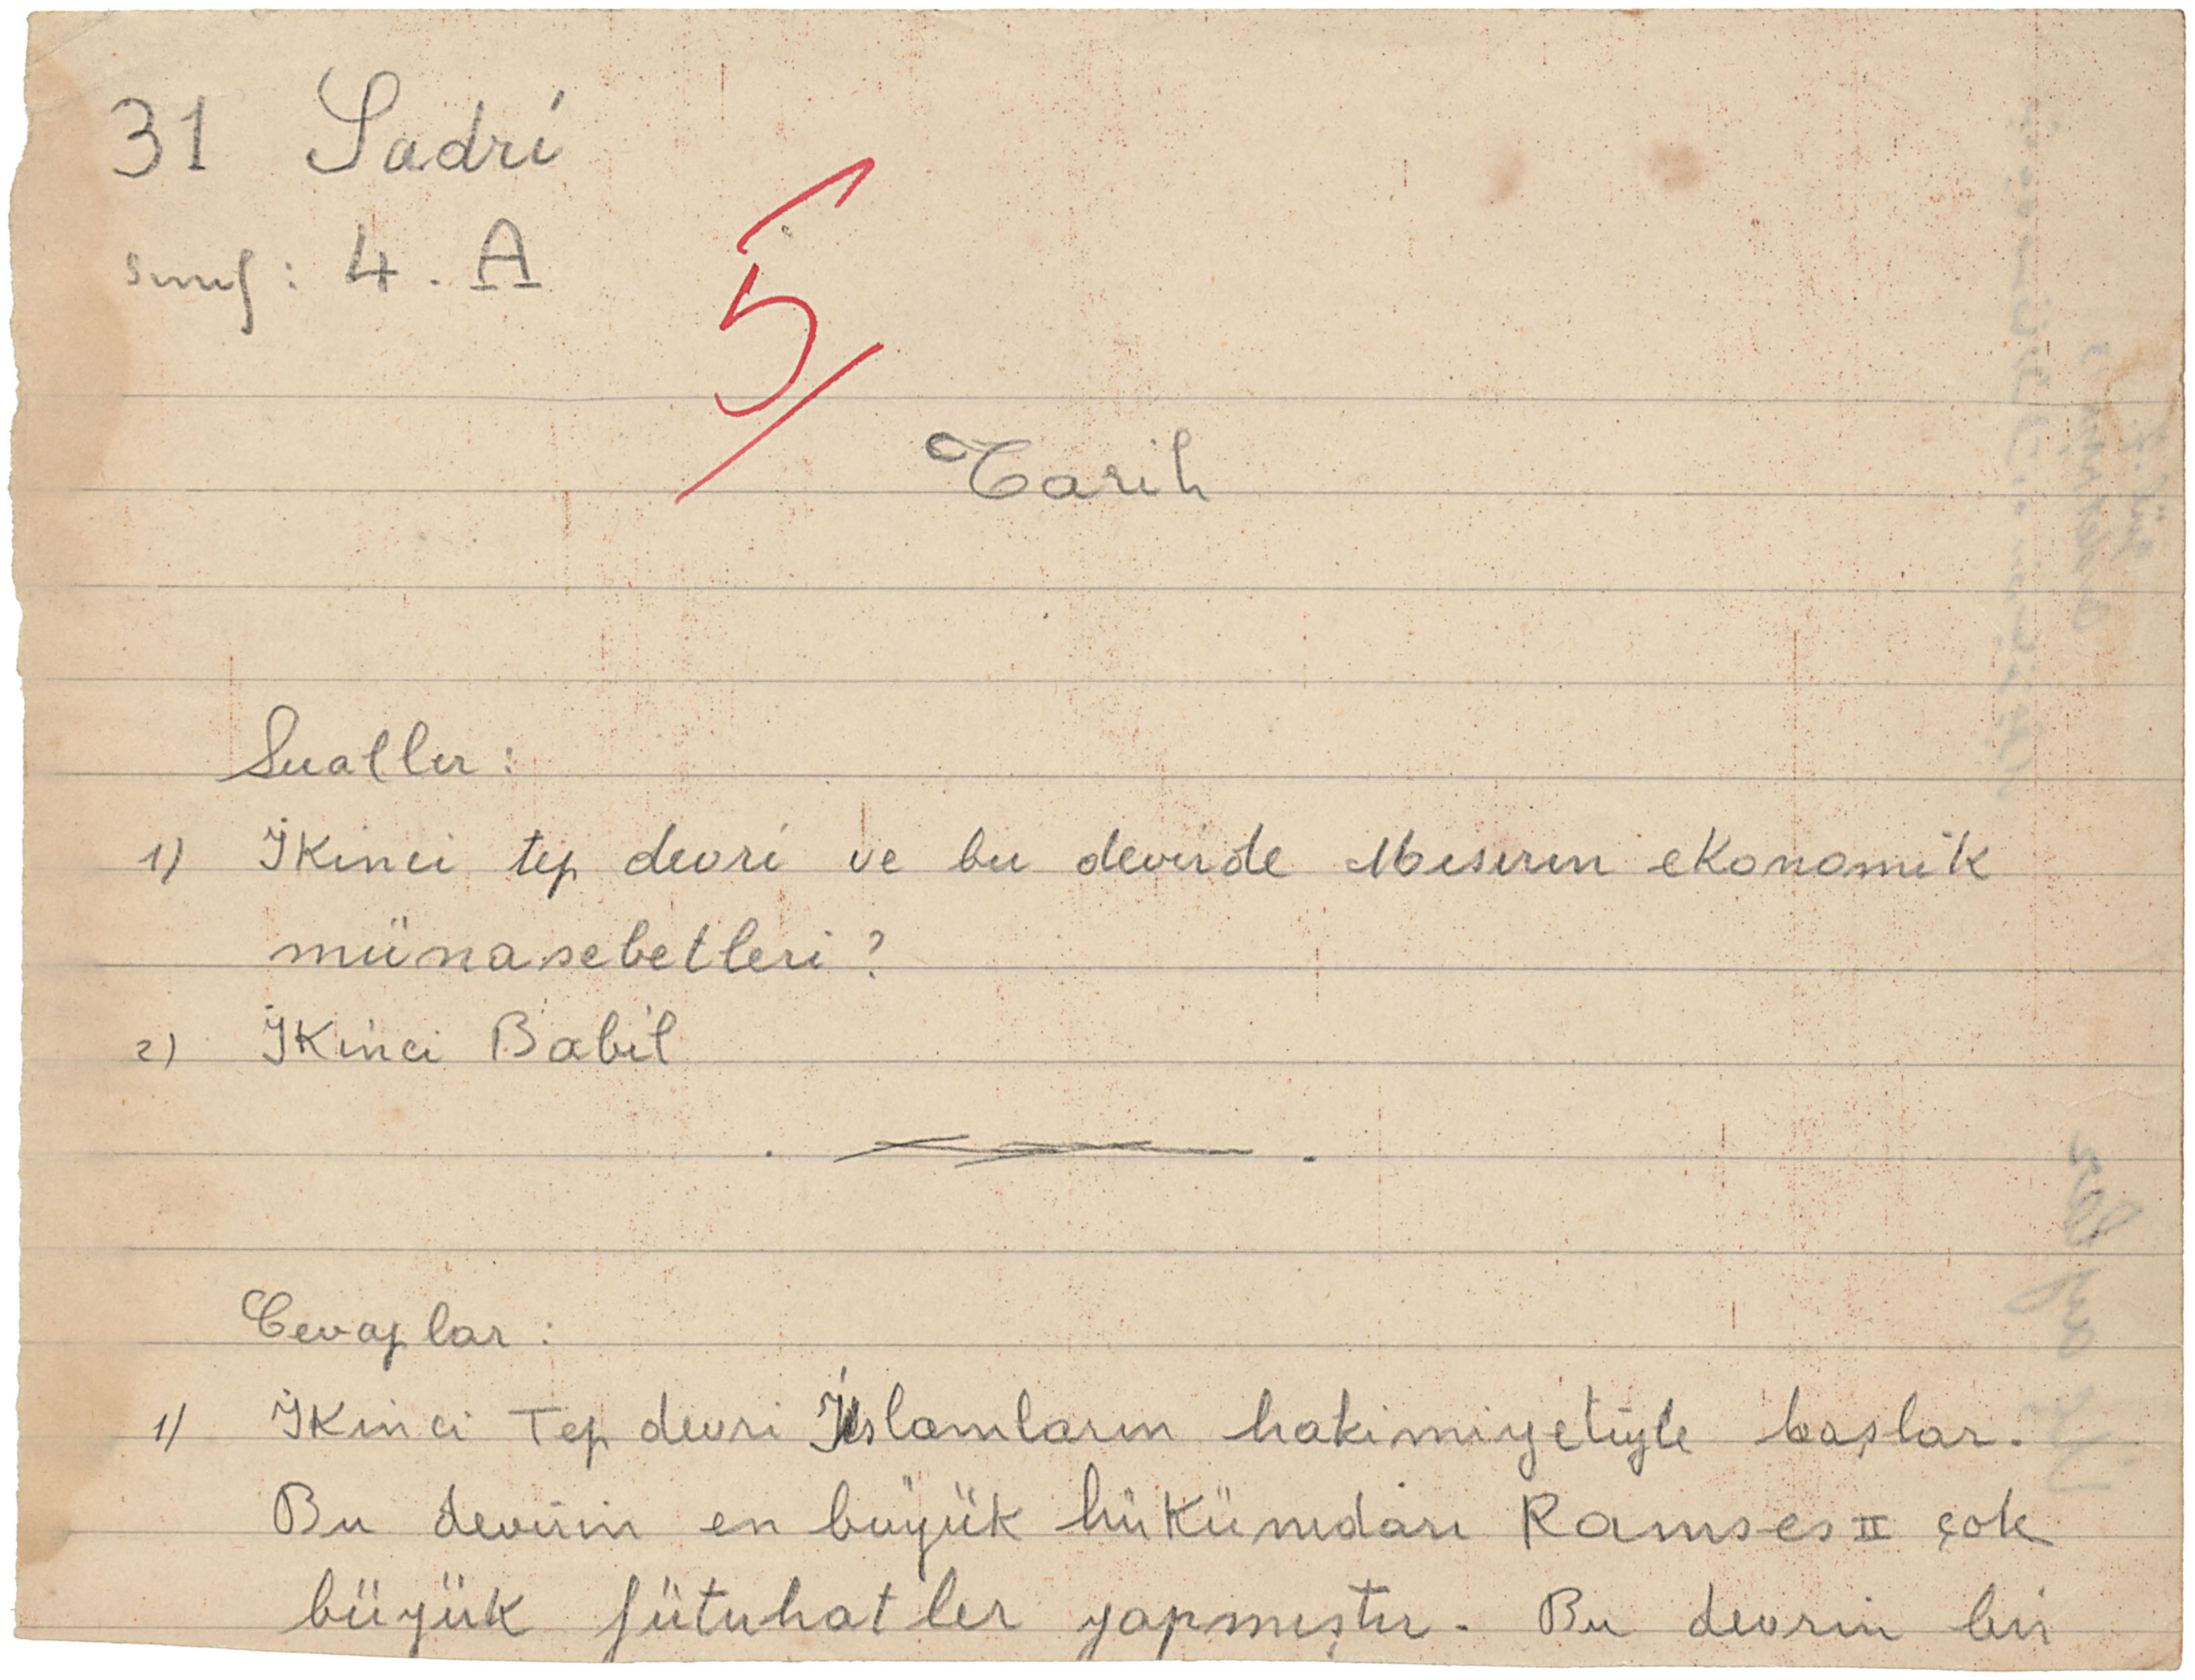 31 Sadri
sınıf: 4. A
5
Tarih
Sualler:
1) İkinci tep devri ve bu devirde Mısırın ekonomik
münasebetleri?
2) İkinci Babil
Cevaplar:
1) İkinci Tep devri İslamların hakimiyetiyle başlar.
Bu devirin en büyük hükümdarı Ramses II çok
büyük fütuhatler yapmıştır. Bu devrin bir